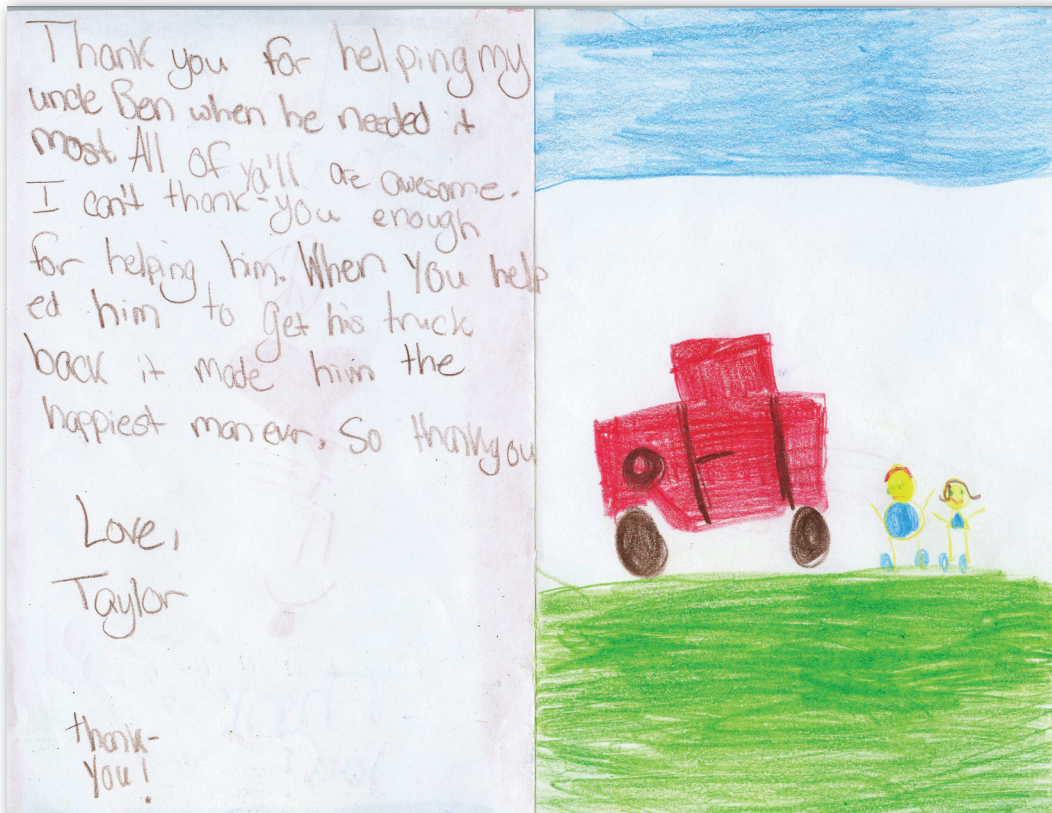 Thank you for helping my
uncle Ben when he needed it
most. All of ya'll are awesome.
I can't thank-you enough
for helping him. When you help
ed him to get his truck
back it made him the
happiest man ever. So thankyou
Love,
Taylor
thank-
you!